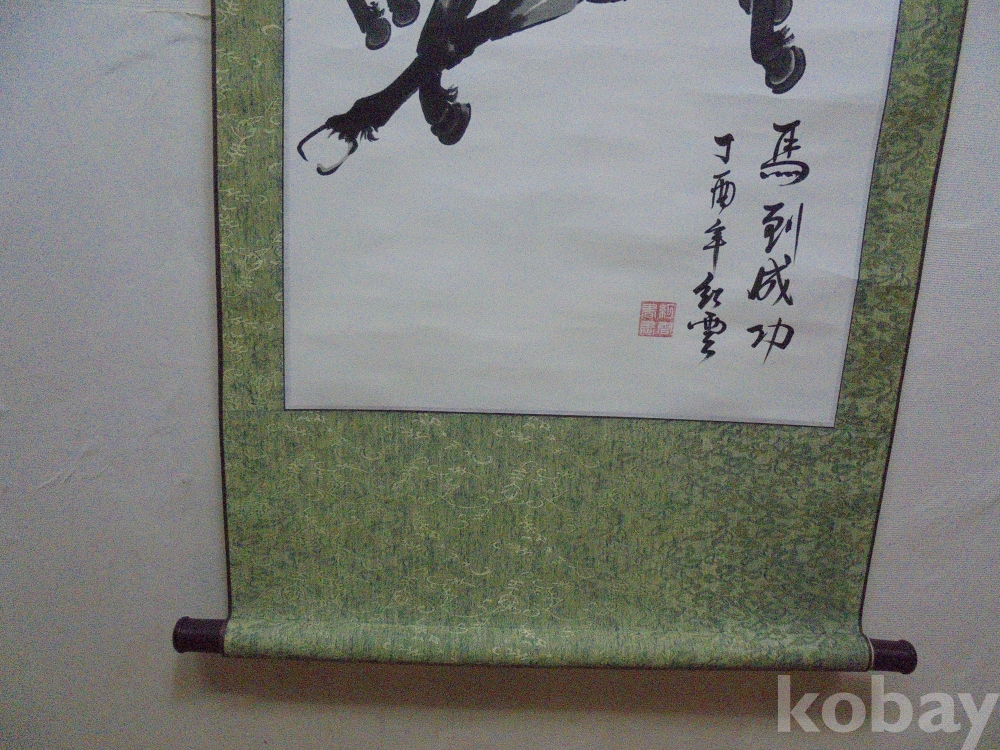 馬到成功
丁酉年紅雲
kobay